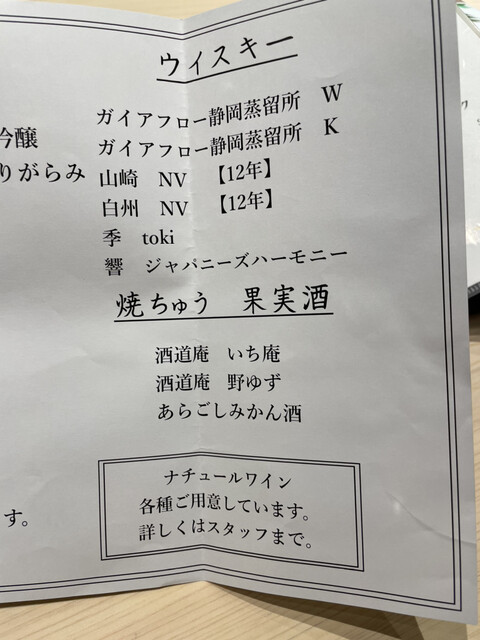 ウィスキー
ガイアフロー静岡蒸留所　W
ガイアフロー静岡蒸留所　K
山崎　NV　【12年】
白州　NV　【12年】
季　toki
響　ジャパニーズハーモニー
焼ちゅう　果実酒
酒道庵　いち庵
酒道庵　野ゆず
あらごしみかん酒
ナチュールワイン
各種ご用意しています。
詳しくはスタッフまで。
吟醸
りがらみ
す。